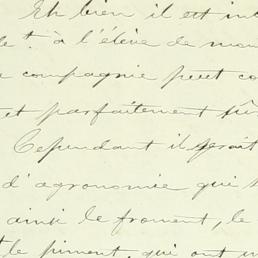 Eh bien il est inc
le t. à l'élève de mou
compagnie peut co
et parfaitement sûr
Cependant il serait
d'agronomie qui s
ainsi le froment, le
le piment, qui ont un